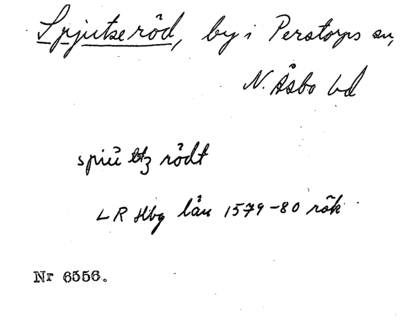 Spjutseröd, by i Perstorps sn,
N. Åsbo hd
spiŭ tz rödt
LR Hbg län 1579-80 räk
Nr 6556.